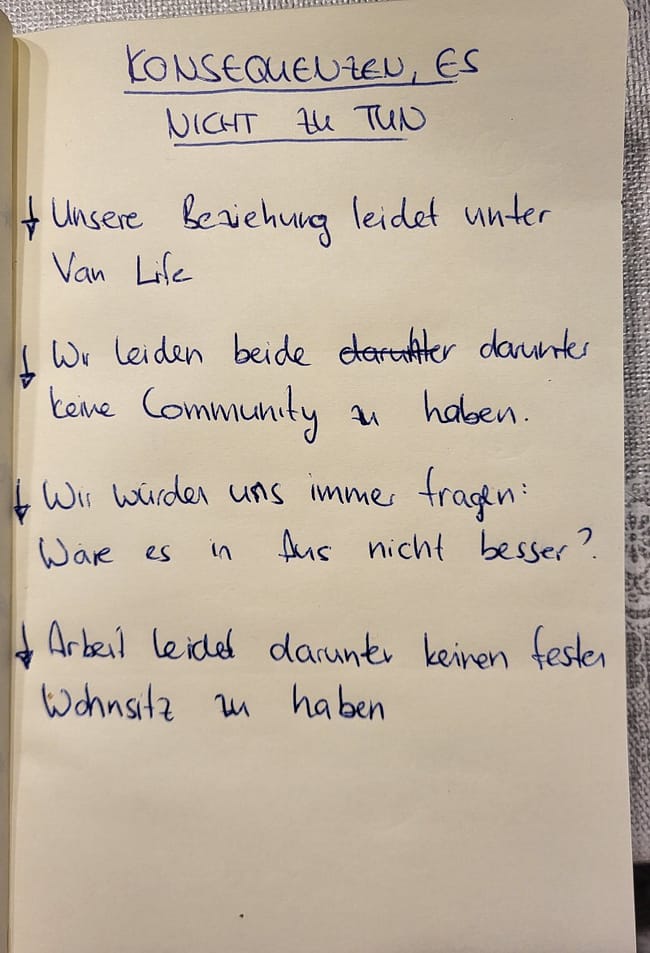 KONSEQUENZEN, ES
NICHT ZU TUN
Unsere Beziehung leidet unter
Van Life
Wir leiden beide darunter darunter
keine Community zu haben.
Wir würden uns immer fragen:
Wäre es in Aus nicht besser?
Arbeit leidet darunter keinen festen
Wohnsitz zu haben